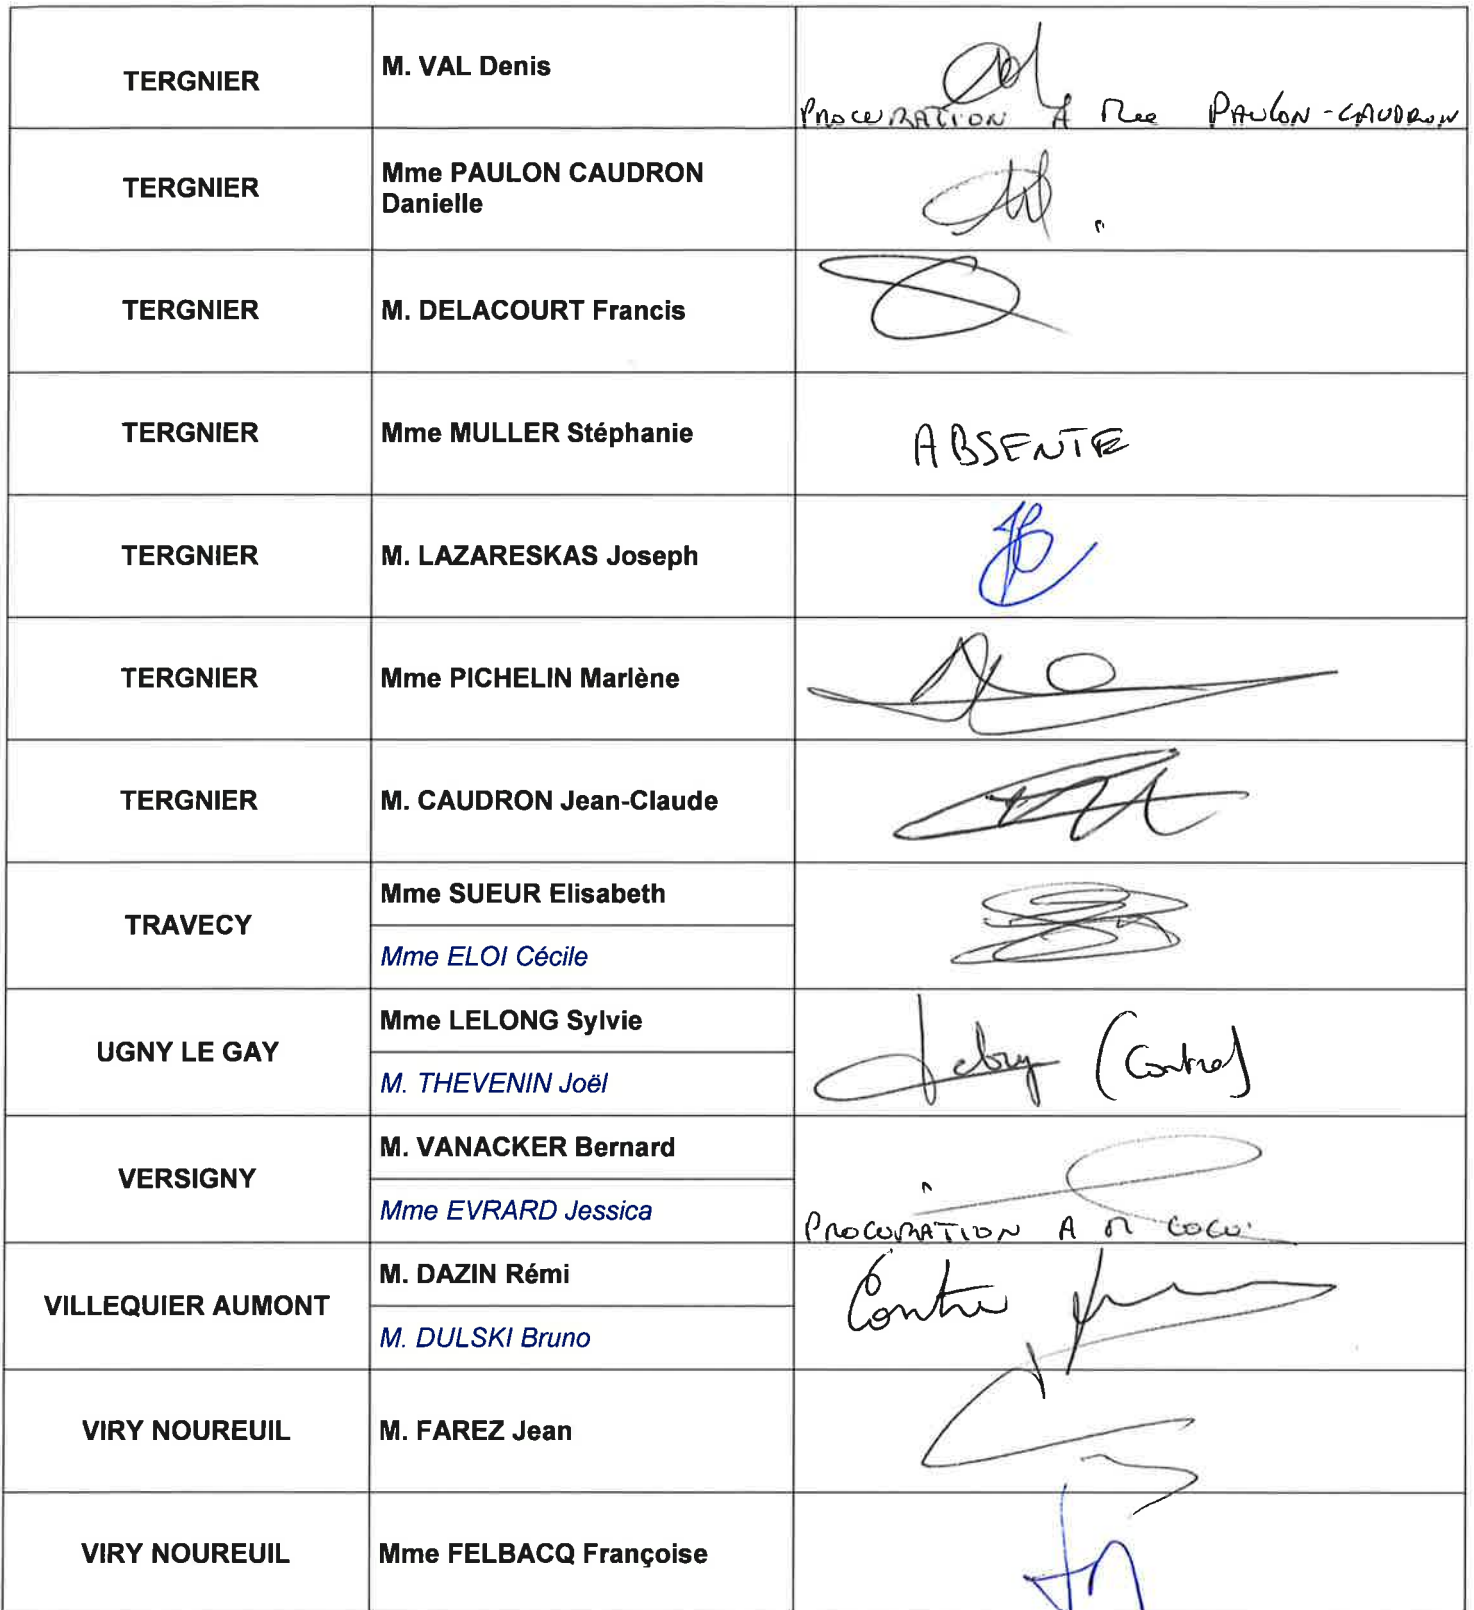 TERGNIER
M. VAL Denis
PROCURATION A Mme PAULON-CAUDRON
TERGNIER
Mme PAULON CAUDRON
Danielle
TERGNIER
M. DELACOURT Francis
TERGNIER
Mme MULLER Stéphanie
ABSENTE
TERGNIER
M. LAZARESKAS Joseph
TERGNIER
Mme PICHELIN Marlène
TERGNIER
M. CAUDRON Jean-Claude
TRAVECY
Mme SUEUR Elisabeth
Mme ELOI Cécile
UGNY LE GAY
Mme LELONG Sylvie
M. THEVENIN Joël
(Contre)
VERSIGNY
M. VANACKER Bernard
Mme EVRARD Jessica
PROCURATION A M COCU
VILLEQUIER AUMONT
M. DAZIN Rémi
M. DULSKI Bruno
Contre
VIRY NOUREUIL
M. FAREZ Jean
VIRY NOUREUIL
Mme FELBACQ Françoise